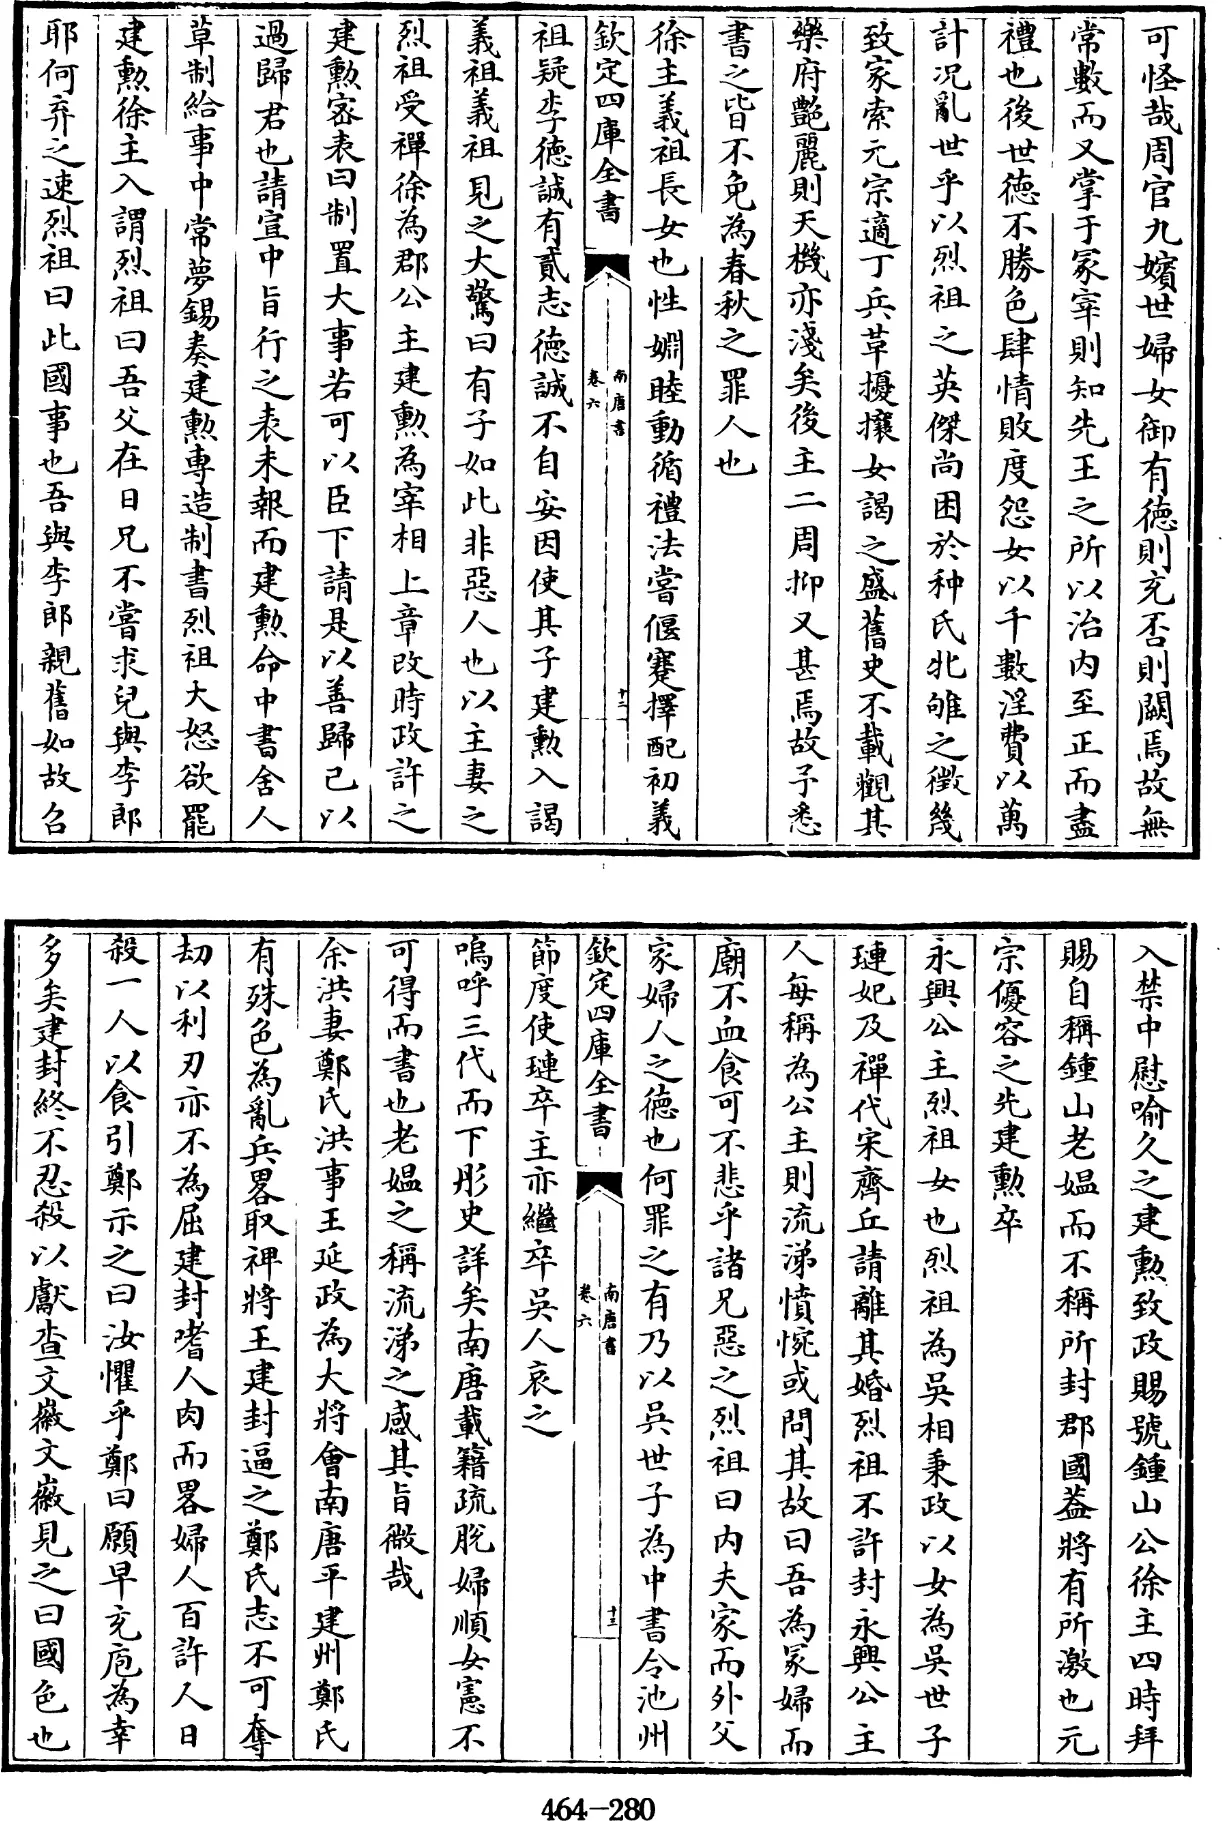 可怪哉周官九嬪世婦女御有徳則充否則闕焉故無
常數而又掌于冢宰則知先王之所以治内至正而盡
禮也後世徳不勝色肆情敗度怨女以千數淫費以萬
計况亂世乎以烈祖之英傑尚困於种氏牝雊之徵幾
致家索元宗適丁兵革擾攘女謁之盛舊史不載觀其
樂府艶麗則天機亦淺矣後主二周抑又甚焉故予悉
書之皆不免為春秋之罪人也
徐主義祖長女也性嫺睦動循禮法嘗偃蹇擇配初義
欽定四庫全書
南唐書
卷六
十二
祖疑李徳誠有貳志徳誠不自安因使其子建勲入謁
義祖義祖見之大驚曰有子如此非惡人也以主妻之
烈祖受禪徐為郡公主建勲為宰相上章改時政許之
建勲宻表曰制置大事若可以臣下請是以善歸己以
過歸君也請宣中旨行之表未報而建勲命中書舍人
草制給事中常夢錫奏建勲專造制書烈祖大怒欲罷
建勲徐主入謂烈祖曰吾父在日兄不嘗求兒與李郎
耶何弃之速烈祖曰此國事也吾與李郎親舊如故召
入禁中慰喻久之建勲致政賜號鍾山公徐主四時拜
賜自稱鍾山老媼而不稱所封郡國葢將有所激也元
宗優容之先建勲卒
永興公主烈祖女也烈祖為吳相秉政以女為吳世子
璉妃及禪代宋齊丘請離其婚烈祖不許封永興公主
人每稱為公主則流涕憤惋或問其故曰吾為冢婦而
廟不血食可不悲乎諸兄惡之烈祖曰内夫家而外父
家婦人之徳也何罪之有乃以吳世子為中書令池州
欽定四庫全書
南唐書
卷六
十三
節度使璉卒主亦繼卒吳人哀之
嗚呼三代而下彤史詳矣南唐載籍疏脱婦順女憲不
可得而書也老媼之稱流涕之感其旨微哉
余洪妻鄭氏洪事王延政為大將會南唐平建州鄭氏
有殊色為亂兵畧取裨將王建封逼之鄭氏志不可奪
刼以利刃亦不為屈建封嗜人肉而畧婦人百許人日
殺一人以食引鄭示之曰汝懼乎鄭曰願早充庖為幸
多矣建封終不忍殺以獻查文徽文徽見之曰國色也
464-280